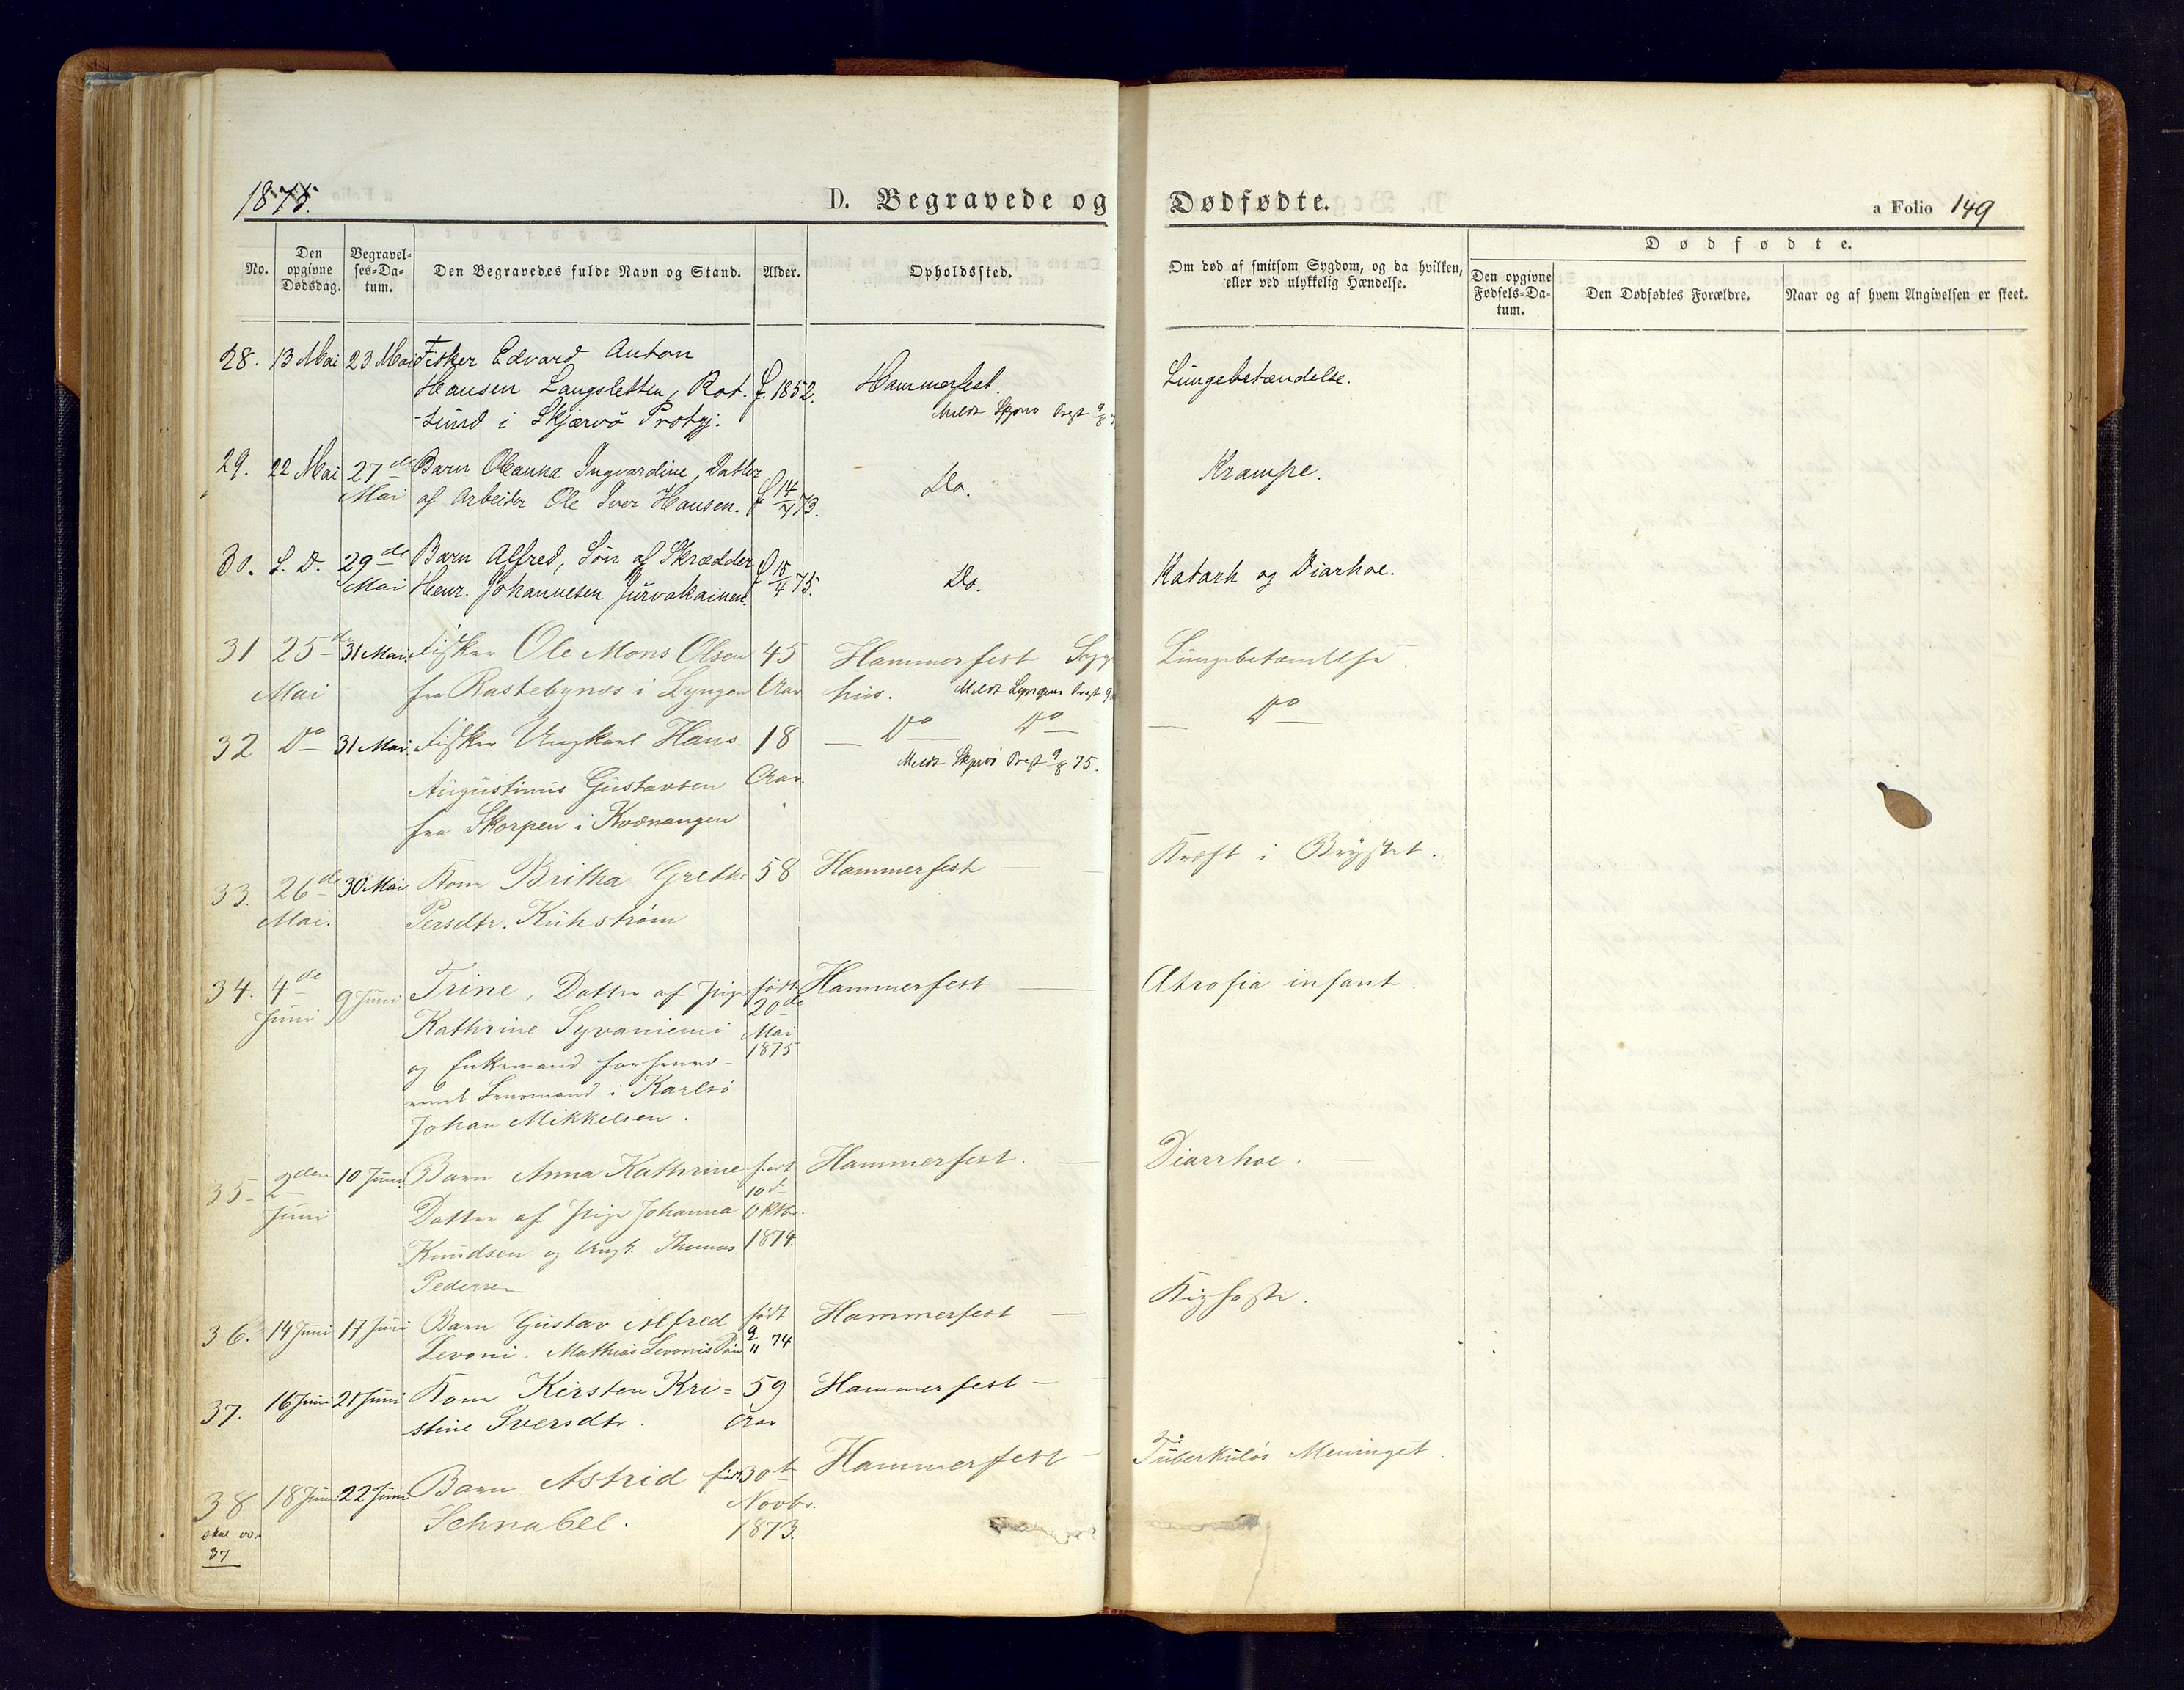 1875.
D. Begravede og
Dødfødte.
a Folio 149
No.
Den opgivne Dødsdag.
Begravelses-Datum.
Den Begravedes fulde Navn og Stand.
Alder.
Opholdssted.
Om død af smitsom Sygdom, og da hvilken, eller ved ulykkelig Hændelse.
Dødfødte.
Den opgivne Fødsels-Datum.
Den Dødfødtes Forældre.
Naar og af hvem Angivelsen er skeet.
28. 13 Mai 23 Mai Fisker Edvard Anton
Hansen Langsletten, Rot- f. 1852. Hammerfest. Lungebetændelse.
-sund i Skjærvö Prstgj. Meldt Skjærvö Præst 9/8
29. 22 Mai 27de Barn Oleanna Ingvardine, Datter Krampe.
Mai af Arbeider Ole Iver Hansen. f 14/7 73. Do.
30. S. D. 29de Barn Alfred, Søn af Skrædder Katarh og Diarhoe.
Mai Henr. Johannesen Jurvakainen. f 15/4 75. Do.
31 25de 31 Mai. Fisker Ole Mons Olsen 45 Hammerfest Syge Lungebetændelse.
Mai fra Rastebynes i Lyngen Aar hus. Meldt Lyngen Præst 9
32 Do 31 Mai. Fisker Ungkarl Hans 18 — Do Do — Do
Augustinus Gustavsen Aar. Meldt Skjervö Præst 9/8 75.
fra Skorpen i Kvænangen
33. 26de 30 Mai Kone Britha Grethe 58 Hammerfest — Kræft i Brystet.
Mai. Persdtr. Kuhstrøm
34. 4de 9 Juni Trine, Datter af Pige født Hammerfest — Atrofia infant.
Juni Kathrine Syvaniemi 20de Mai
og Enkemand forhenvæ- 1875
rende Lensmand i Karlsö
Johan Mikkelsen.
35 2den 10 Juni. Barn Anna Kathrine født Hammerfest. — Diarrhoe. —
Juni Datter af Pige Johanna 10de Oktbr.
Knudsen og Ungk. Thomas 1874.
Pedersen
36. 14 Juni 17 Juni Barn Gustav Alfred født Hammerfest — Kighoste.
Levoni. Mathias Levonis Søn 9/11 74
37. 16 Juni 21 Juni Kone Kirsten Kri= 59 Hammerfest —
stine Iversdtr. Aar
38 18 Juni 22 Juni Barn Astrid født 30te Hammerfest — Tuberkuløs Meninget.
skal være Schnabel. Novbr.
37 1873.